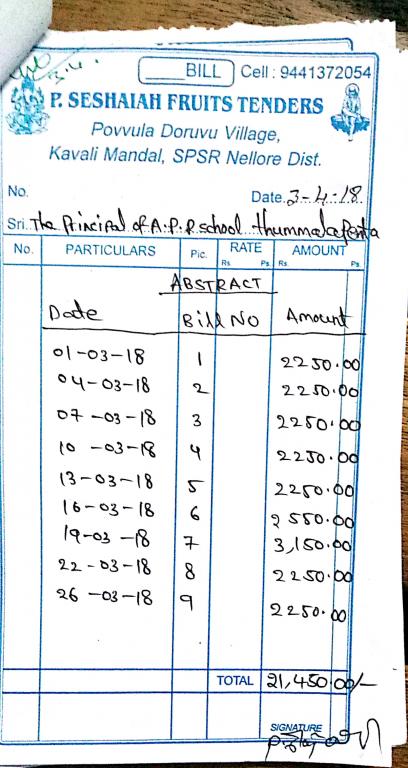 BILL Cell : 9441372054
P. SESHAIAH FRUITS TENDERS
Povvula Doruvu Village,
Kavali Mandal, SPSR Nellore Dist.
No. Date. 3-4-18
Sri. The Principal of A.P.R school Thummalapenta
No. PARTICULARS Pic. RATE AMOUNT
Rs. Ps. Rs. Ps.
ABSTRACT
Date Bill No Amount
01-03-18 1 2250.00
04-03-18 2 2250.00
07-03-18 3 2250.00
10-03-18 4 2250.00
13-03-18 5 2250.00
16-03-18 6 2550.00
19-03-18 7 3,150.00
22-03-18 8 2250.00
26-03-18 9 2250.00
TOTAL 21,450.00/-
SIGNATURE